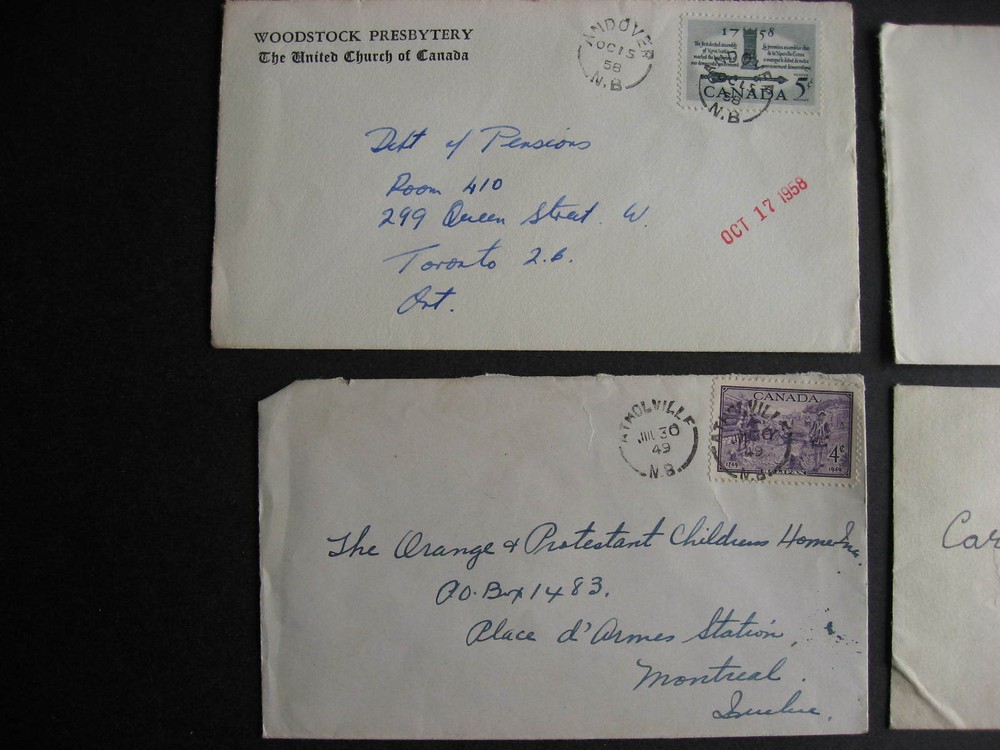 WOODSTOCK PRESBYTERY
The United Church of Canada
ANDOVER
OC 15
58
N.B
1758
ANDOVER
58
N.B
CANADA 5¢
Dept of Pensions
Room 410
299 Queen Street. W.
Toronto 2.B.
Ont.
OCT 17 1958
ATHOLVILLE
JUL 30
49
N.B.
CANADA
ATHOLVILLE
49
N.B
4¢
1749
1949
The Orange & Protestant Childrens Home Inc.
P.O. Box 1483.
Place d'Armes Station,
Montreal.
Quebec.
Car